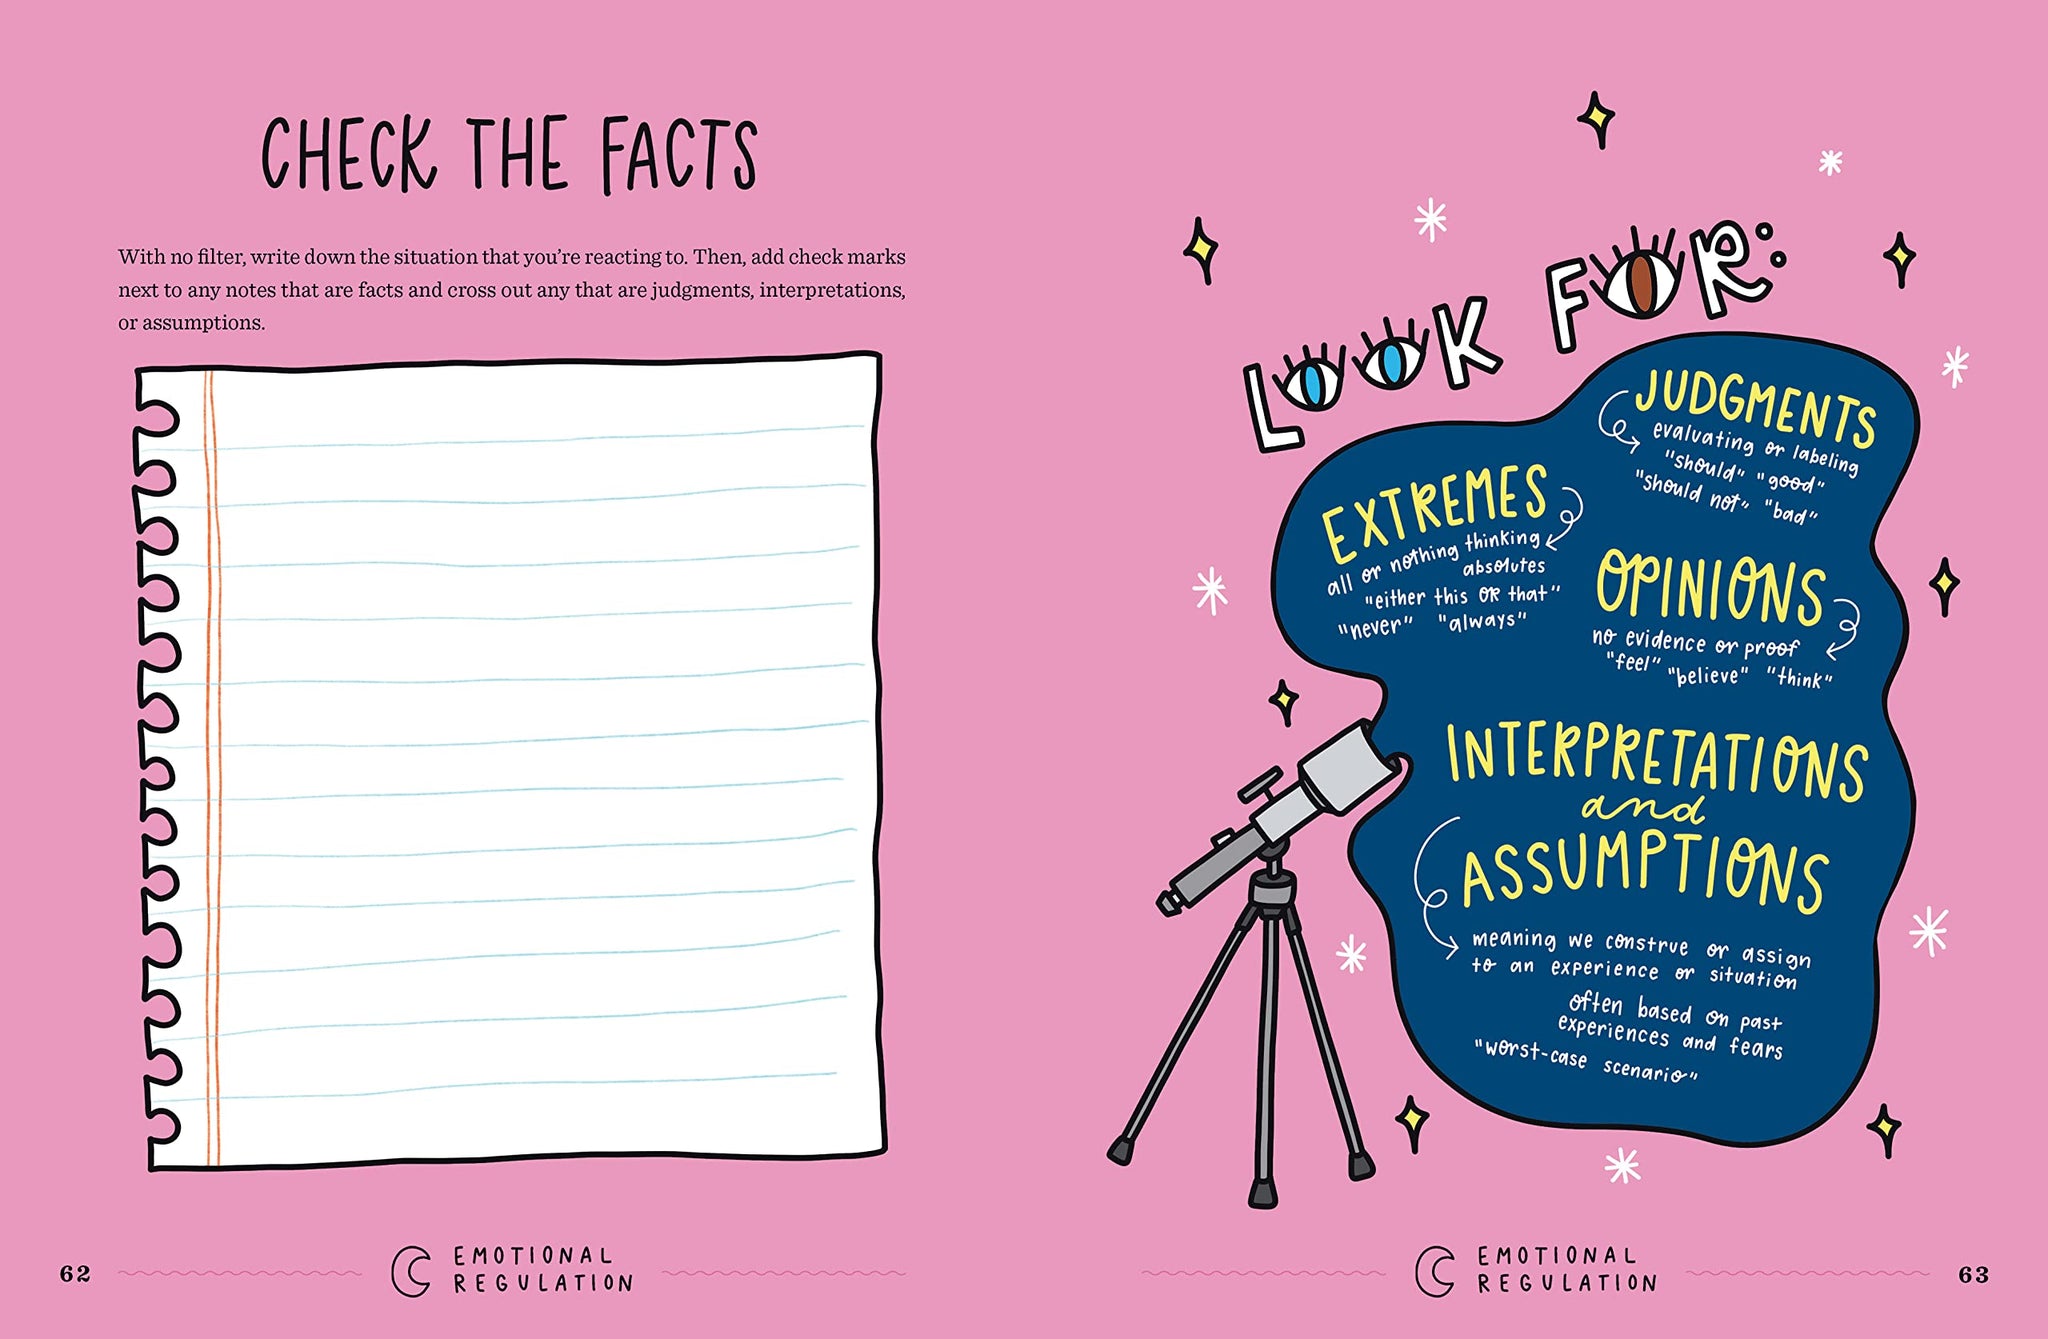 CHECK THE FACTS
With no filter, write down the situation that you’re reacting to. Then, add check marks
next to any notes that are facts and cross out any that are judgments, interpretations,
or assumptions.
62
EMOTIONAL
REGULATION
LOOK FOR:
JUDGMENTS
evaluating or labeling
"should" "good"
"should not" "bad"
EXTREMES
all or nothing thinking
absolutes
"either this OR that"
"never" "always"
OPINIONS
no evidence or proof
"feel" "believe" "think"
INTERPRETATIONS
and
ASSUMPTIONS
meaning we construe or assign
to an experience or situation
often based on past
experiences and fears
"worst-case scenario"
EMOTIONAL
REGULATION
63